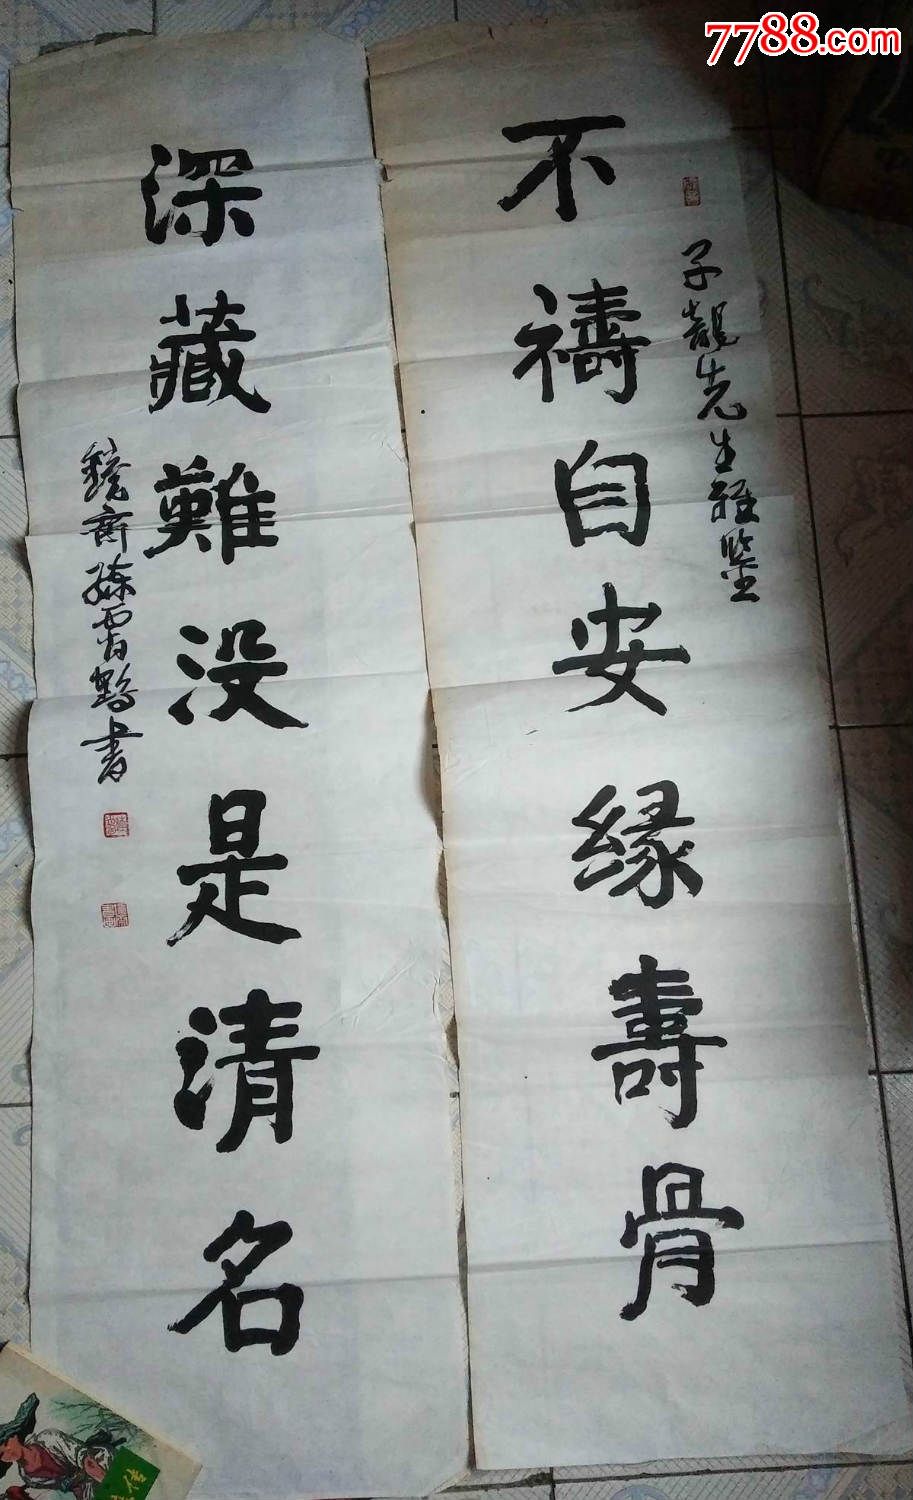 7788.com
子龍先生雅鑒
不禱自安缘壽骨
深藏難没是清名
鏡齋孫霄鹤書